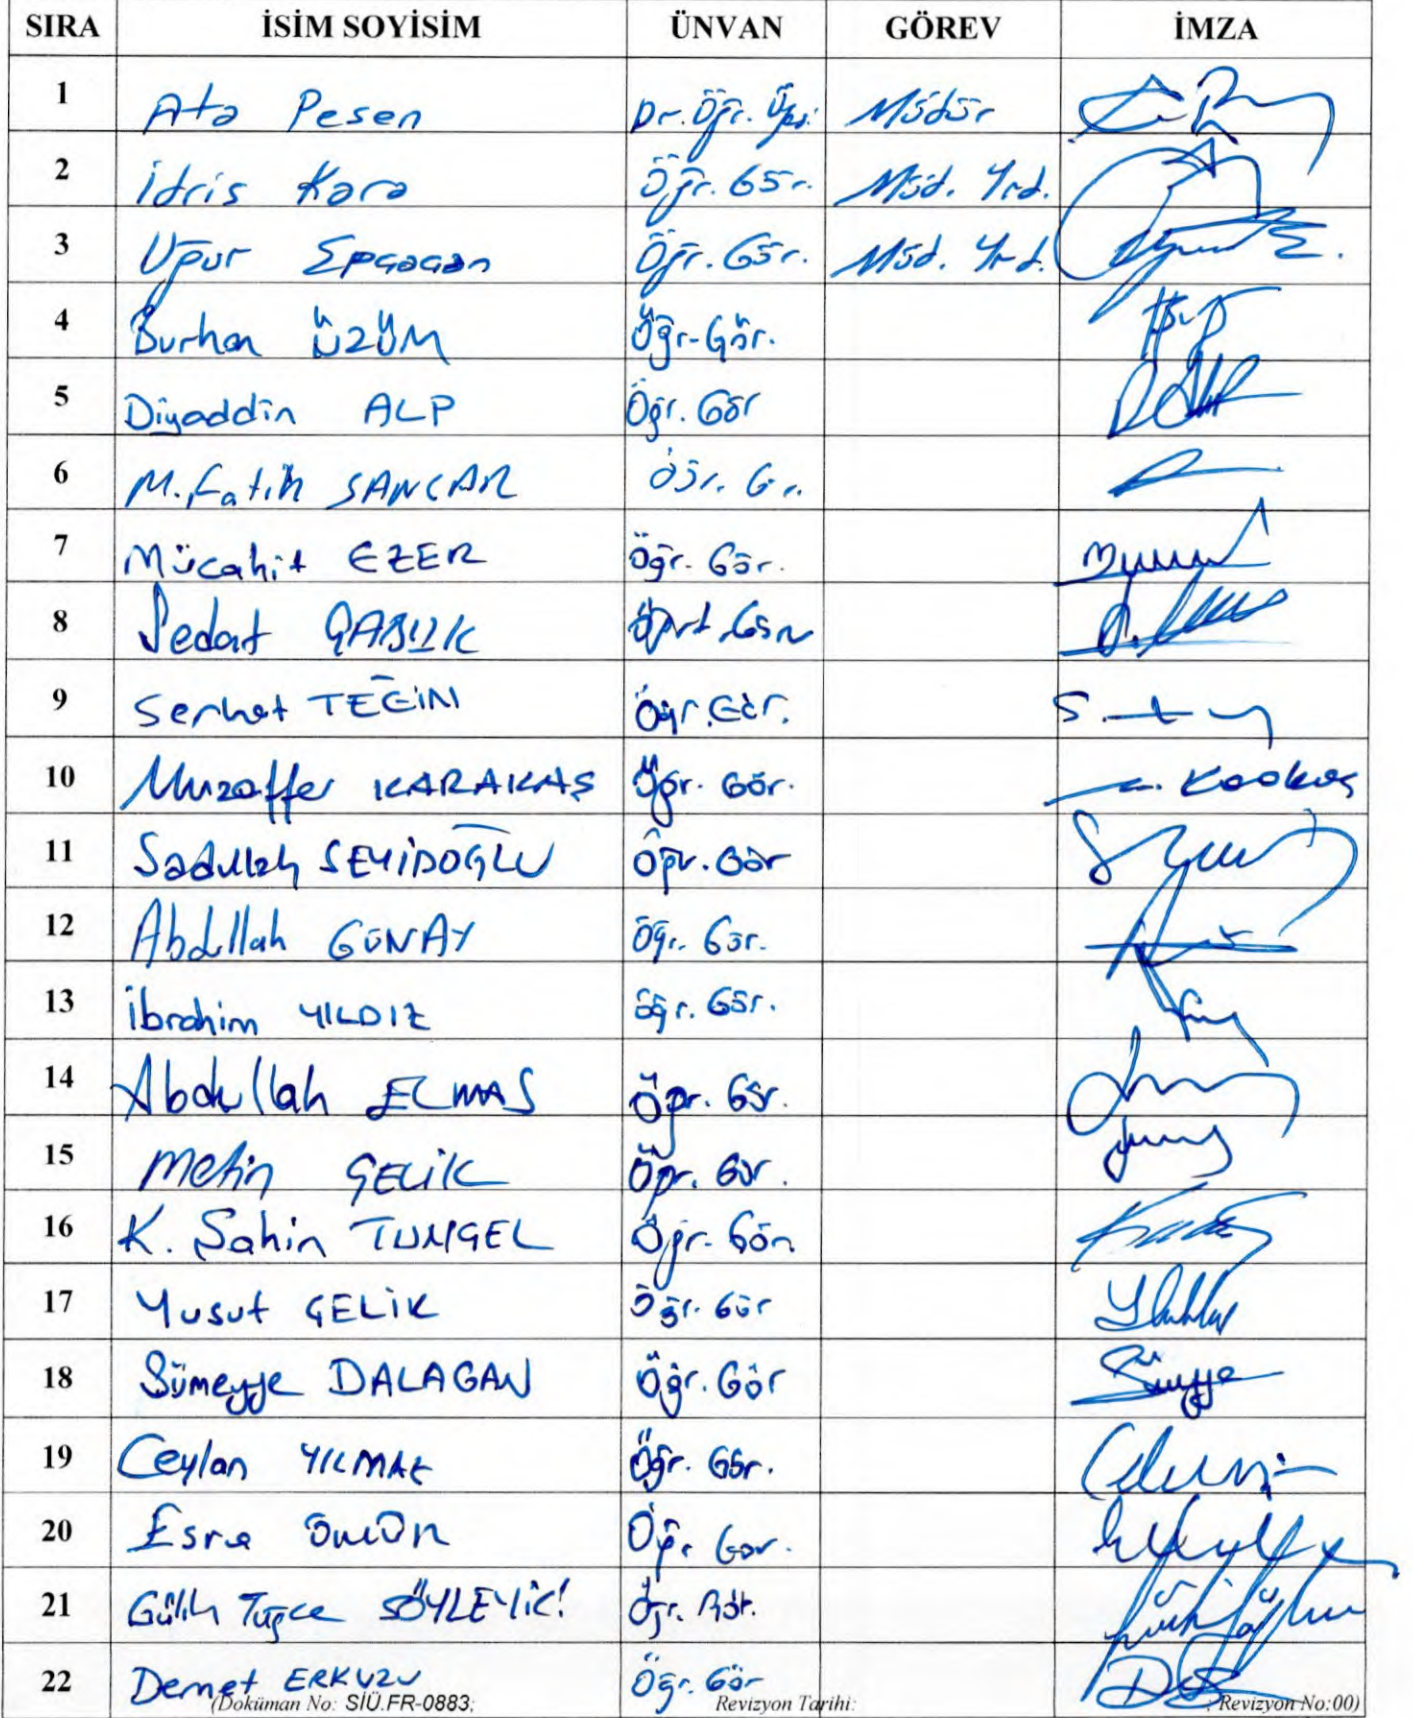 SIRA İSİM SOYİSİM ÜNVAN GÖREV İMZA
1 Ata Pesen Dr. Öğr. Üyesi Müdür
2 İdris Kara Öğr. Gör. Müd. Yrd.
3 Uğur Müd. Yrd. Öğr. Gör.
4 Burhan ÜZÜM Öğr. Gör.
5 Diyaddin ALP Öğr. Gör
6 M. Fatih SANCAR Öğr. G r.
7 Mücahit EZER Öğr. Gör.
8 Sedat ÇABUK Gör
9 Serhat TEĞİN Öğr. Gör.
10 Muzaffer KARAKAŞ Öğr. Gör.
11 Sadullah SEYİDOĞLU Öğr. Gör
12 Abdullah GÜNAY Öğr. Gör.
13 İbrahim YILDIZ Öğr. Gör.
14 Abdullah ELMAS Öğr. Gör.
15 Metin ÇELİK Öğr. Gör.
16 K. Şahin TUNÇEL Öğr. Gör
17 Yusuf ÇELİK Öğr. Gör
18 Sümeyye DALAGAN Öğr. Gör
19 Ceylan YILMAZ Öğr. Gör.
20 Esra Öğr. Gör.
21 Tuğçe Öğr. Gör.
22 Demet ERKUZU Öğr. Gör
(Doküman No: SİÜ.FR-0883; Revizyon Tarihi: ; Revizyon No:00)